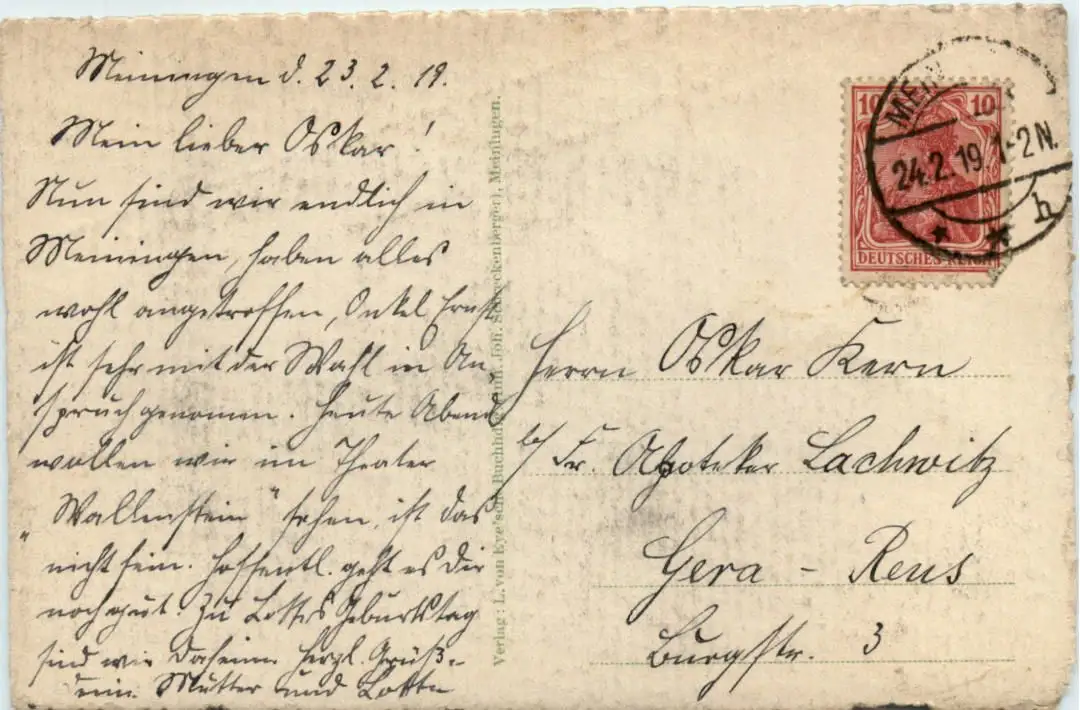 Meiningen d. 23.2.19.
Mein lieber Oskar!
Nun sind wir endlich in
Meiningen, haben alles
wohl angetroffen, Onkel Ernst
ist sehr mit der Wahl in An-
spruch genomen. Heute Abend
wollen wir im Theater
"Wallenstein" sehen, ist das
nicht fein. Hoffentl. geht es dir
noch gut. Zu Lottes Geburtstag
sind wir daheim. Herzl. Grüß-
Mutter und Lotte
Verlag L. von Eye'sche Buchhdlg. Joh. Schneckenberger), Meiningen.
10 10
DEUTSCHES REICH
24.2.19 1-2N.
h
Herrn Oskar Kern
b/ Fr. Apoteker Lachwitz
Gera - Reus
Burgstr. 3